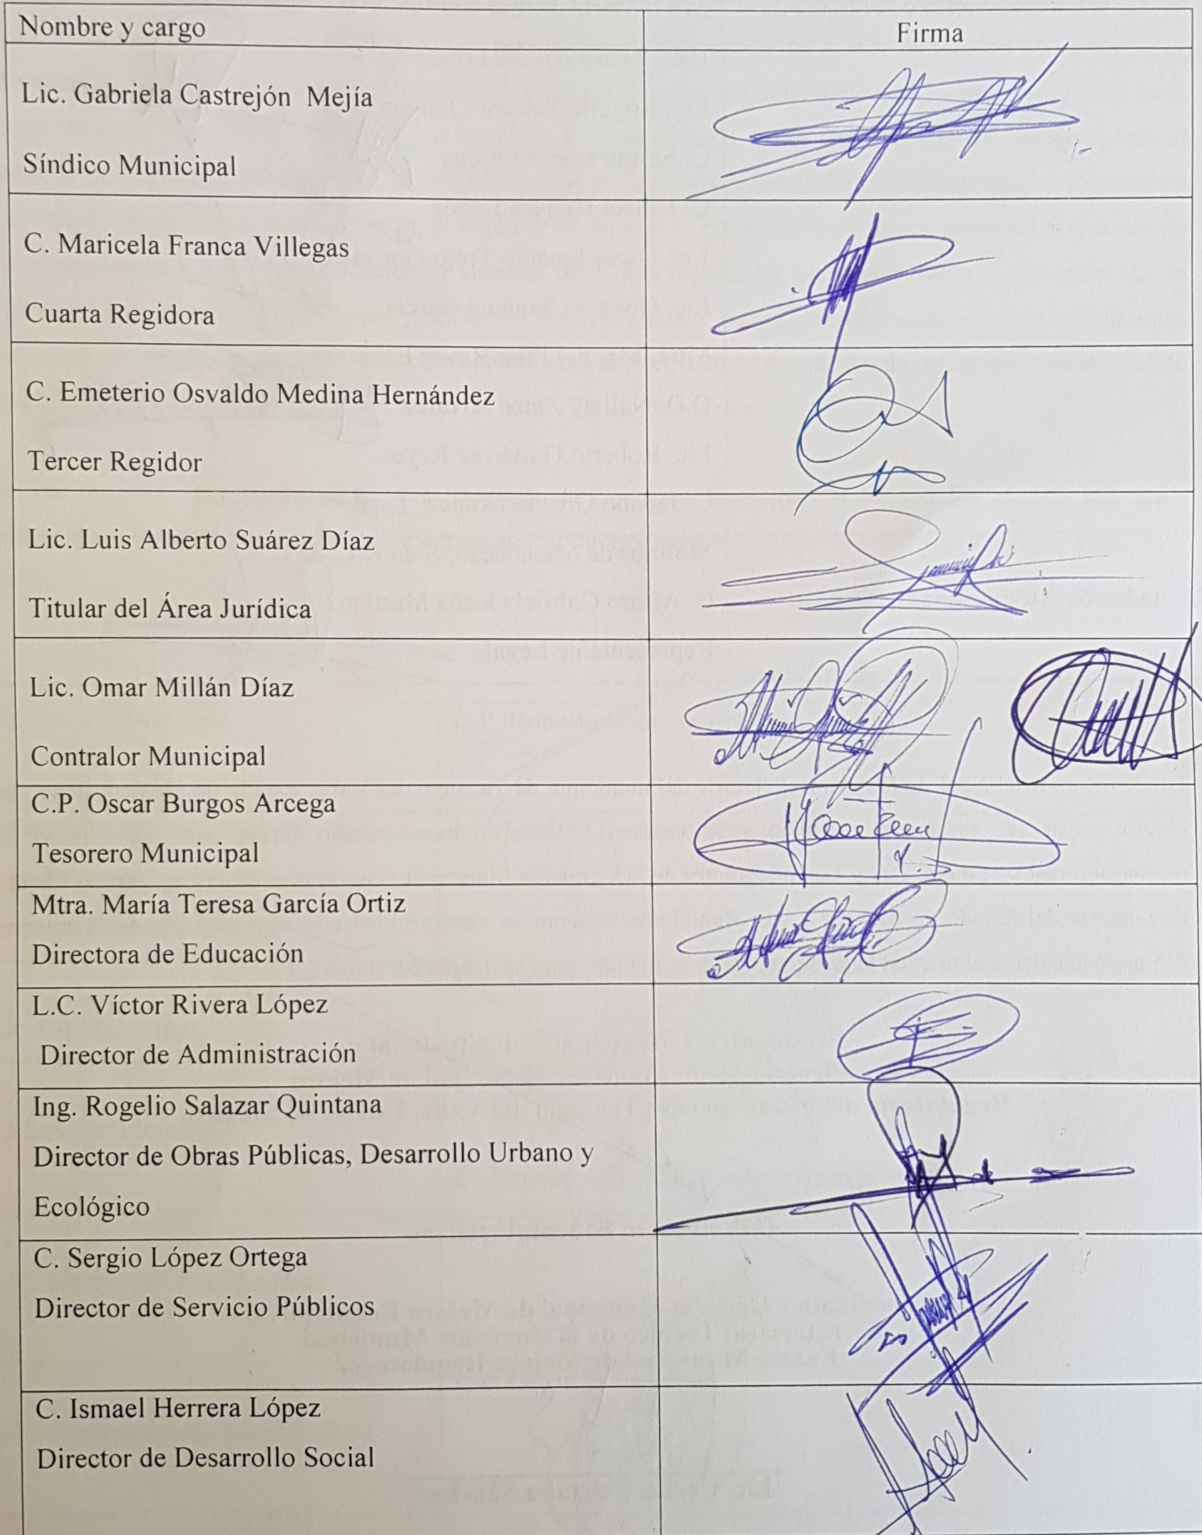 Nombre y cargo
Firma
Lic. Gabriela Castrejón Mejía
Síndico Municipal
C. Maricela Franca Villegas
Cuarta Regidora
C. Emeterio Osvaldo Medina Hernández
Tercer Regidor
Lic. Luis Alberto Suárez Díaz
Titular del Área Jurídica
Lic. Omar Millán Díaz
Contralor Municipal
C.P. Oscar Burgos Arcega
Tesorero Municipal
Mtra. María Teresa García Ortiz
Directora de Educación
L.C. Víctor Rivera López
Director de Administración
Ing. Rogelio Salazar Quintana
Director de Obras Públicas, Desarrollo Urbano y
Ecológico
C. Sergio López Ortega
Director de Servicio Públicos
C. Ismael Herrera López
Director de Desarrollo Social